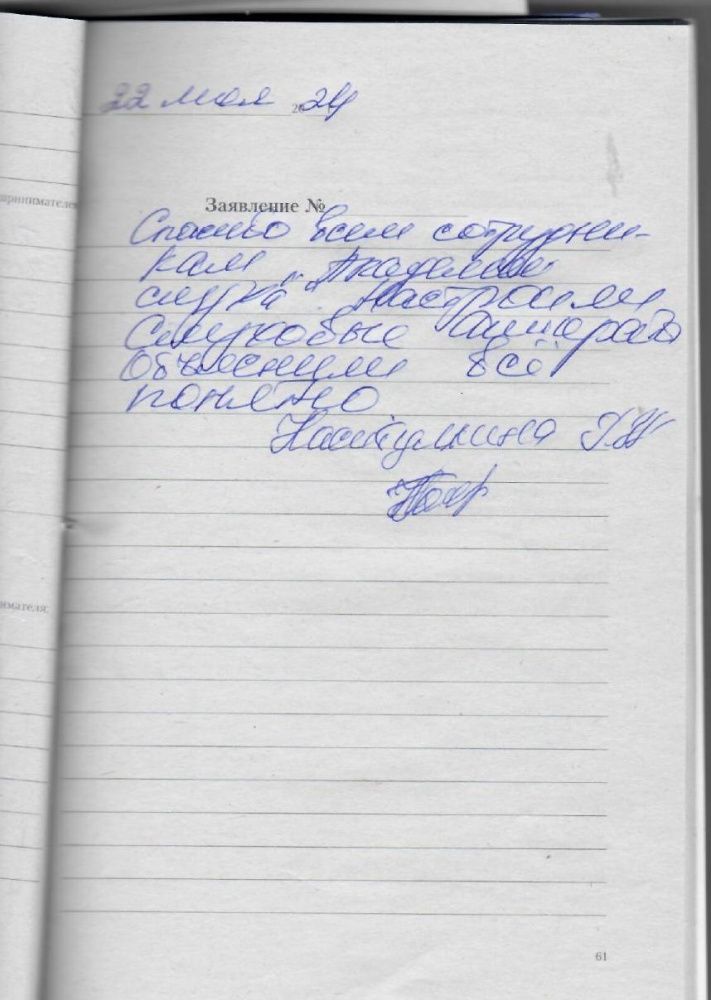 22 мая 2024
Заявление №
Спасибо всем сотрудни-
кам „Академии
слуха" Настроили
Слуховые аппараты
Объяснили всё
понятно
61
принимателя
имателя: